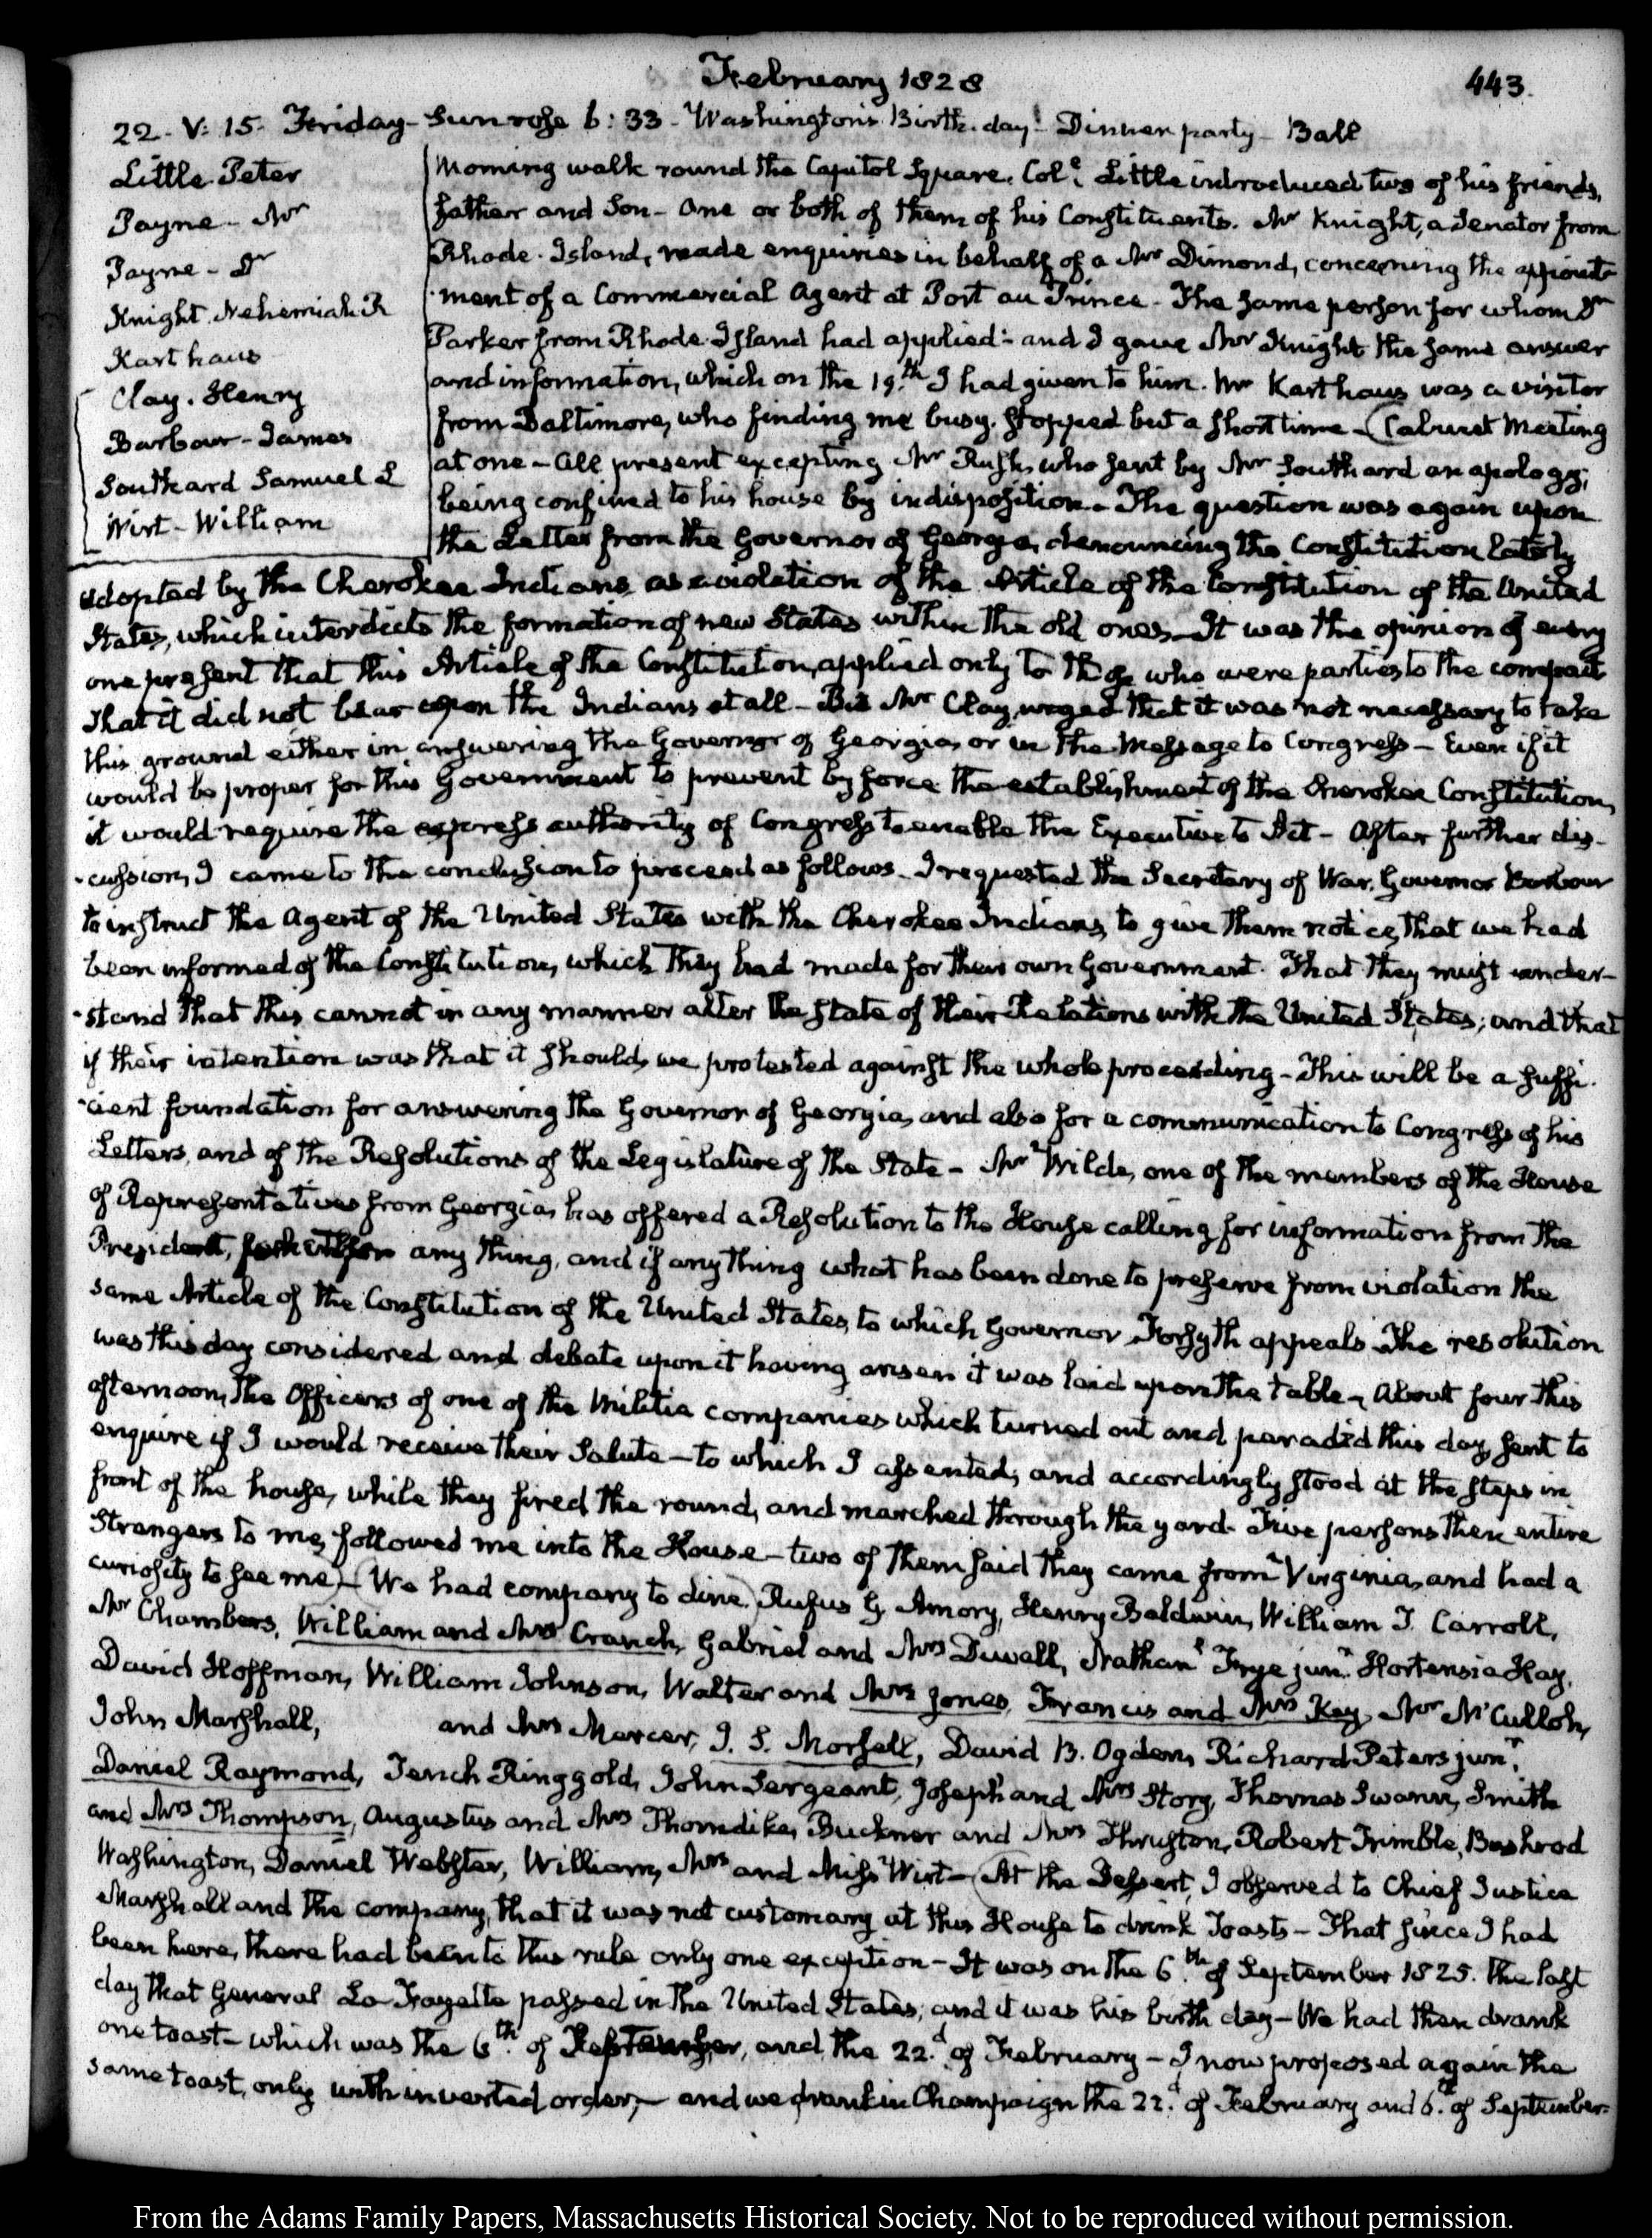 February 1828
443.
22. V: 15. Friday. Sun rose 6: 33. Washington's Birth. day. Dinner party. Ball
Little Peter
Payne - Mr
Payne - Dr
Knight Nehemiah R
Karthaus
Clay. Henry
Barbour - James
Southard Samuel L
Wirt - William
Morning walk round the Capitol Square. Coll. Little introduced two of his friends,
father and Son - one or both of them of his Constituents. Mr Knight, a Senator from
Rhode-Island, made enquiries in behalf of a Mr Dimond, concerning the appoint-
-ment of a Commercial Agent at Port au Prince - The same person for whom Dr
Parker from Rhode-Island had applied - and I gave Mr Knight the same answer
and information, which on the 19th I had given to him. Mr Karthaus was a visitor
from Baltimore, who finding me busy. stopped but a short time - Cabinet Meeting
at one - all present excepting Mr Rush, who sent by Mr Southard an apology;
being confined to his house by indisposition - The question was again upon
the Letter from the Governor of Georgia, denouncing the Constitution lately
adopted by the Cherokee Indians, as a violation of the Article of the Constitution of the United
States, which interdicts the formation of new States within the old ones - It was the opinion of every
one present that this Article of the Constitution, applied only to those who were parties to the compact
That it did not bear upon the Indians at all - But Mr Clay urged that it was not necessary to take
this ground either in answering the Governor of Georgia, or in the Message to Congress - Even if it
would be proper for this Government to prevent by force the establishment of the Cherokee Constitution,
it would require the express authority of Congress to enable the Executive to Act - After further dis-
-cussion, I came to the conclusion to proceed as follows. I requested the Secretary of War, Governor Barbour
to instruct the Agent of the United States with the Cherokee Indians, to give them notice, that we had
been informed of the Constitution, which they had made for their own Government. That they must under-
-stand that this cannot in any manner alter the State of their Relations with the United States; and that
if their intention was that it should, we protested against the whole proceeding - This will be a suffi-
-cient foundation for answering the Governor of Georgia, and also for a communication to Congress of his
Letters, and of the Resolutions of the Legislature of the State - Mr Wilde, one of the members of the House
of Representatives from Georgia, has offered a Resolution to the House calling for information from the
President, any thing, and if any thing what has been done to preserve from violation the
same Article of the Constitution of the United States, to which Governor Forsyth appeals. The resolution
was this day considered and debate upon it having arisen it was laid upon the table - About four this
afternoon, the Officers of one of the Militia companies which turned out and paraded this day, sent to
enquire if I would receive their Salute - to which I assented, and accordingly stood at the steps in
front of the house, while they fired the round, and marched through the yard. Five persons then entire
Strangers to me, followed me into the House - two of them said they came from Virginia, and had a
curiosity to see me - We had company to dine. Rufus G Amory, Henry Baldwin, William T. Carroll,
Mr Chambers, William and Mrs Cranch, Gabriel and Mrs Duvall, Nathanl Frye junr. Hortensia Hay,
David Hoffman, William Johnson, Walter and Mrs Jones, Francis and Mrs Key, Mr McCulloh,
John Marshall, and Mrs Mercer, J. S. Morsell, David B. Ogden, Richard Peters junr,
Daniel Raymond, Tench Ringgold, John Sergeant, Joseph and Mrs Story, Thomas Swann, Smith
and Mrs Thompson, Augustus and Mrs Thorndike, Buckner and Mrs Thruston, Robert Trimble, Bushrod
Washington, Daniel Webster, William, Mrs and Miss Wirt - At the Dessert, I observed to Chief Justice
Marshall and the company, that it was not customary at this House to drink Toasts - That since I had
been here, there had been to this rule only one exception - It was on the 6th. of September 1825. the last
day that General La Fayette passed in the United States; and it was his birth day - We had then drank
one toast - which was the 6th. of September, and the 22d. of February - I now proposed again the
same toast, only with inverted order, - and we drank in Champaign the 22d. of February and 6th. of September.
From the Adams Family Papers, Massachusetts Historical Society. Not to be reproduced without permission.